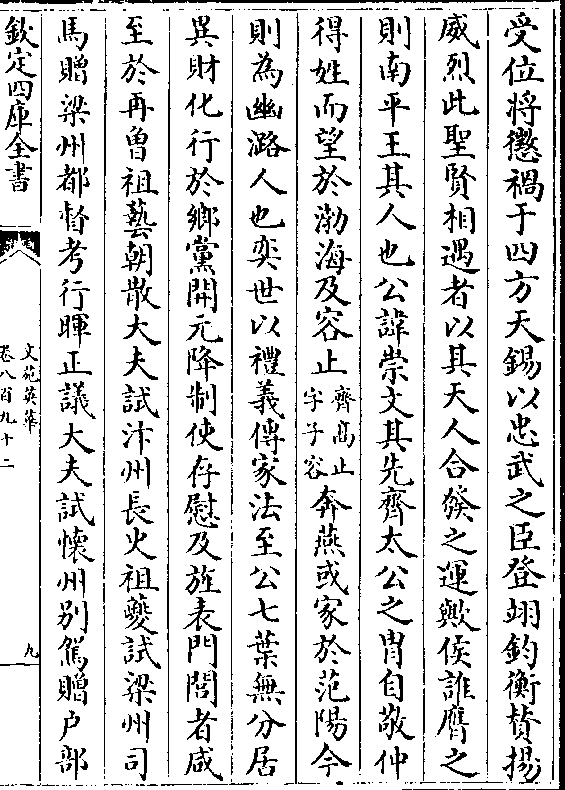 受位將懲禍于四方天錫以忠武之臣登翊鈞衡賛揚
威烈此聖賢相遇者以其天人合發之運歟侯誰膺之
則南平王其人也公諱崇文其先齊太公之胄自敬仲
得姓而望於渤海及容止齊高止字子容奔燕或家於范陽今
則為幽潞人也奕世以禮義傳家法至公七葉無分居
異財化行於鄉黨開元降制使存慰及旌表門閭者咸
至於再曽祖藝朝散大夫試汴州長史祖夔試梁州司
馬贈梁州都督考行暉正議大夫試懷州别駕贈户部
欽定四庫全書
文苑英華
卷八百九十二
九